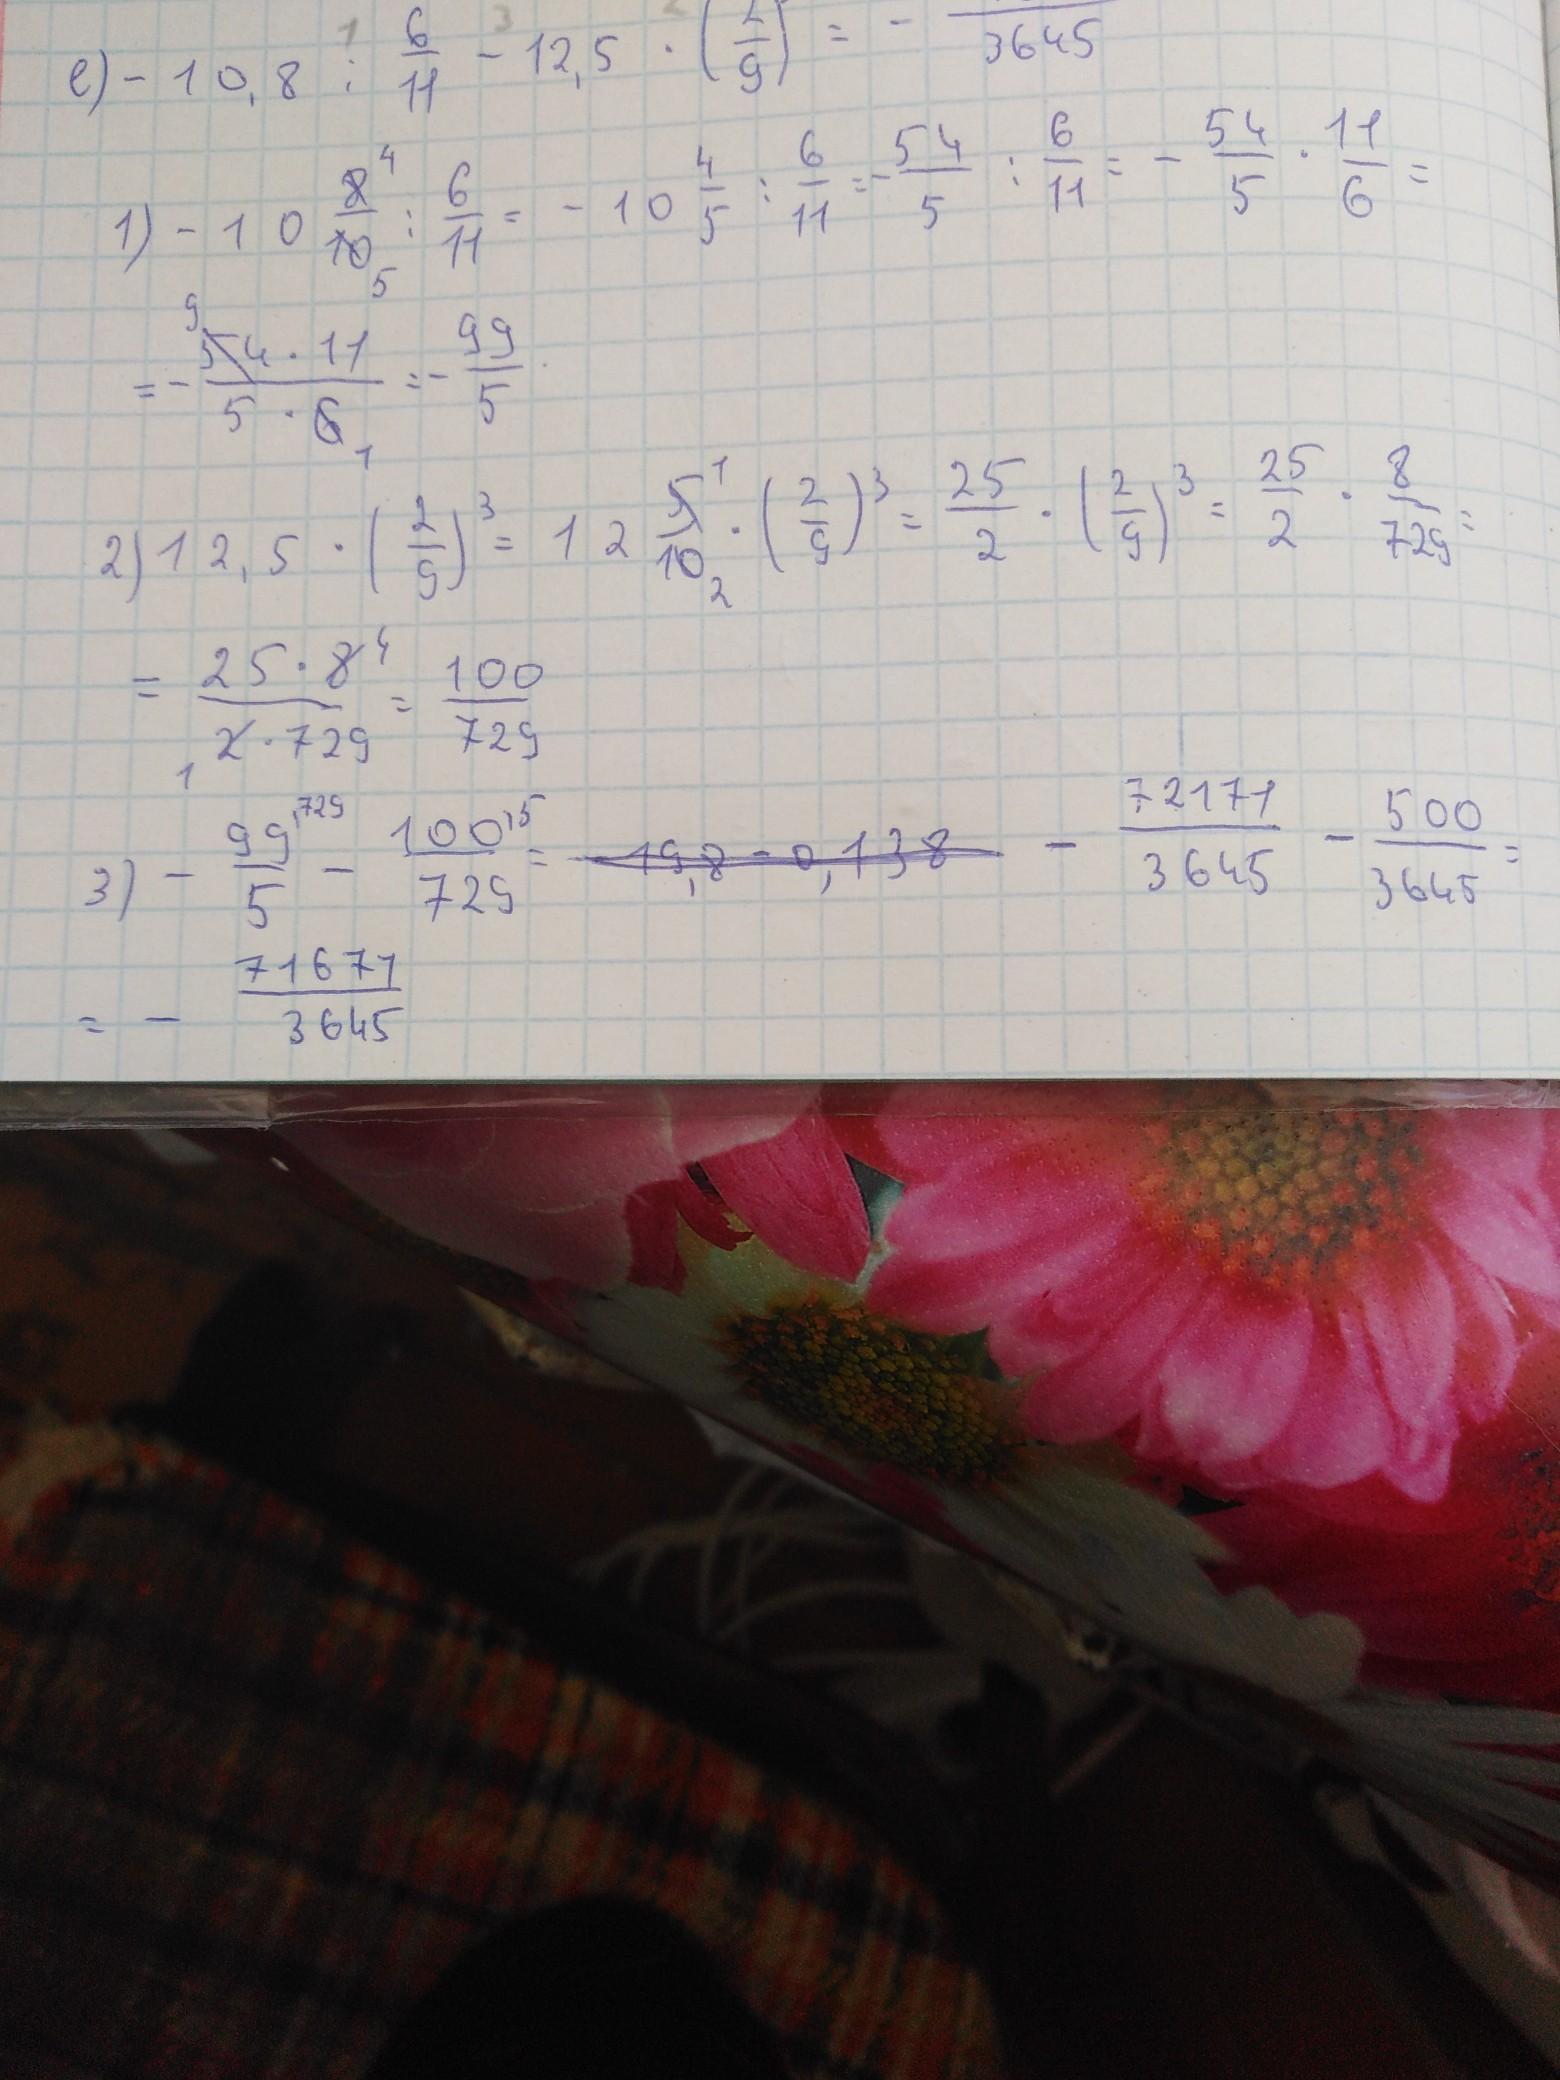 е) - 10,8 : 6/11 - 12,5 · (2/9) = - /3645
1) - 10 8/10 : 6/11 = - 10 4/5 : 6/11 = - 54/5 : 6/11 = - 54/5 · 11/6 =
= - 54 · 11 / 5 · 6 = - 99/5
2) 12,5 · (2/9)³ = 12 5/10 · (2/9)³ = 25/2 · (2/9)³ = 25/2 · 8/729 =
= 25 · 8 / 2 · 729 = 100/729
3) - 99/5 - 100/729 = - 72171/3645 - 500/3645 =
= - 71671/3645